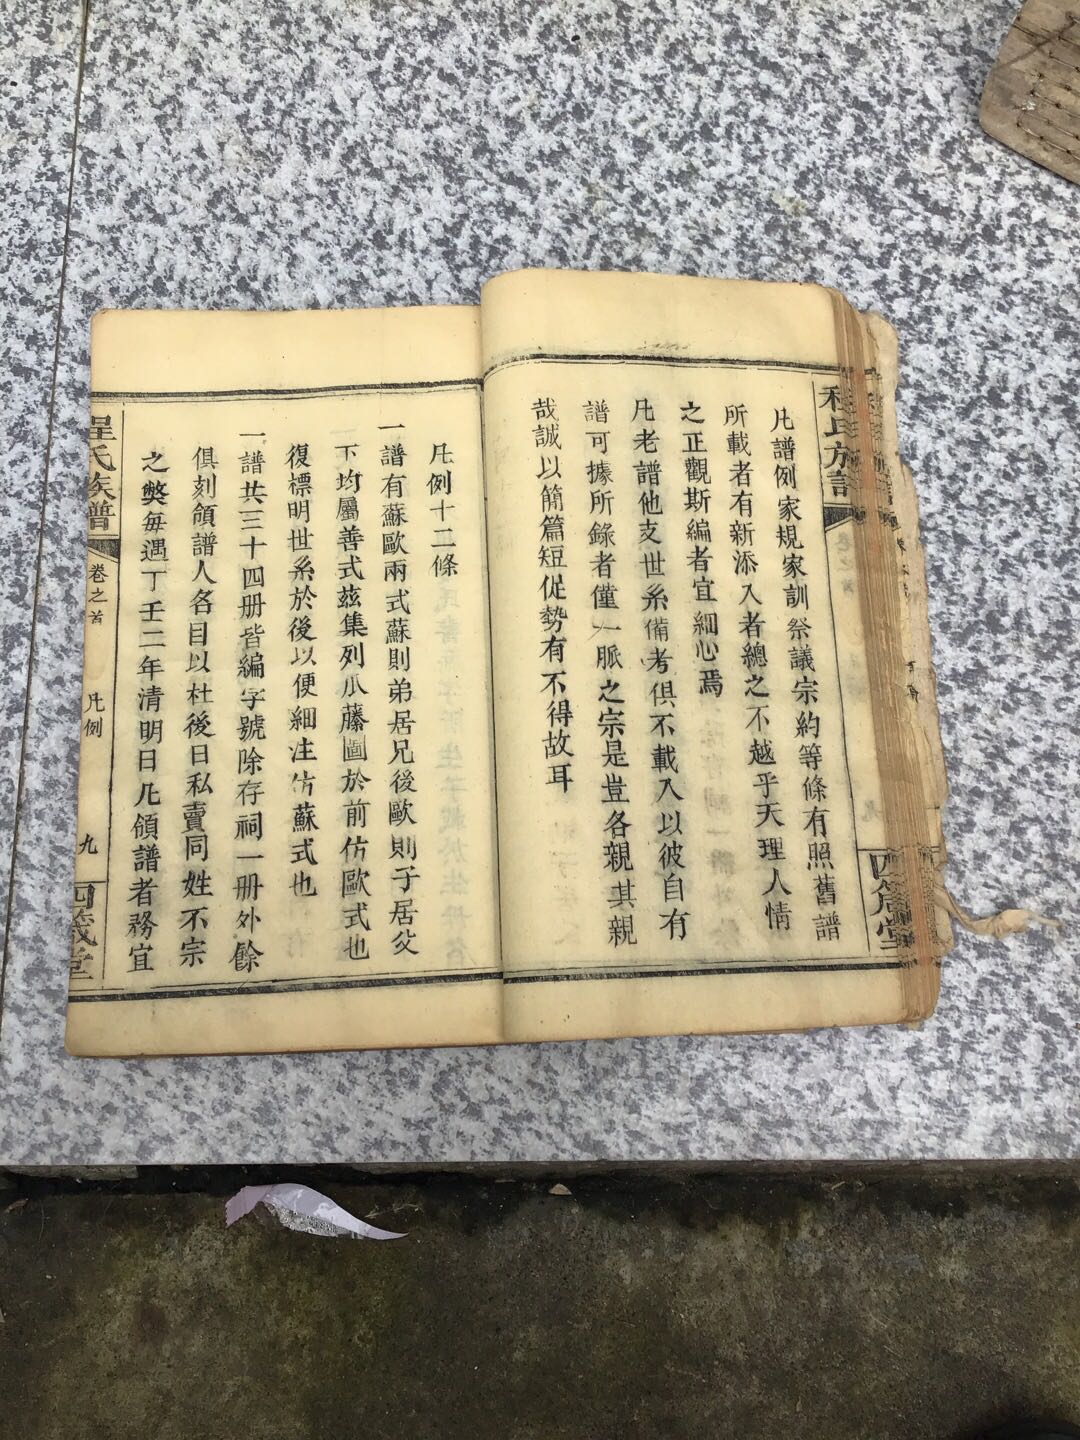 程氏族譜
四箴堂
凡譜例家規家訓祭議宗約等條有照舊譜
所載者有新添入者總之不越乎天理人情
之正觀斯編者宜細心焉
凡老譜他支世系備考俱不載入以彼自有
譜可據所錄者僅一脈之宗是豈各親其親
哉誠以簡篇短促勢有不得故耳
凡例十二條
一譜有蘇歐兩式蘇則弟居兄後歐則子居父
下均屬善式茲集列爪藤圖於前仿歐式也
復標明世系於後以便細注仿蘇式也
一譜共三十四册皆編字號除存祠一册外餘
俱刻領譜人各目以杜後日私賣同姓不宗
之獘每遇丁壬二年清明日凡領譜者務宜
程氏族譜
卷之首
凡例
九
四箴堂